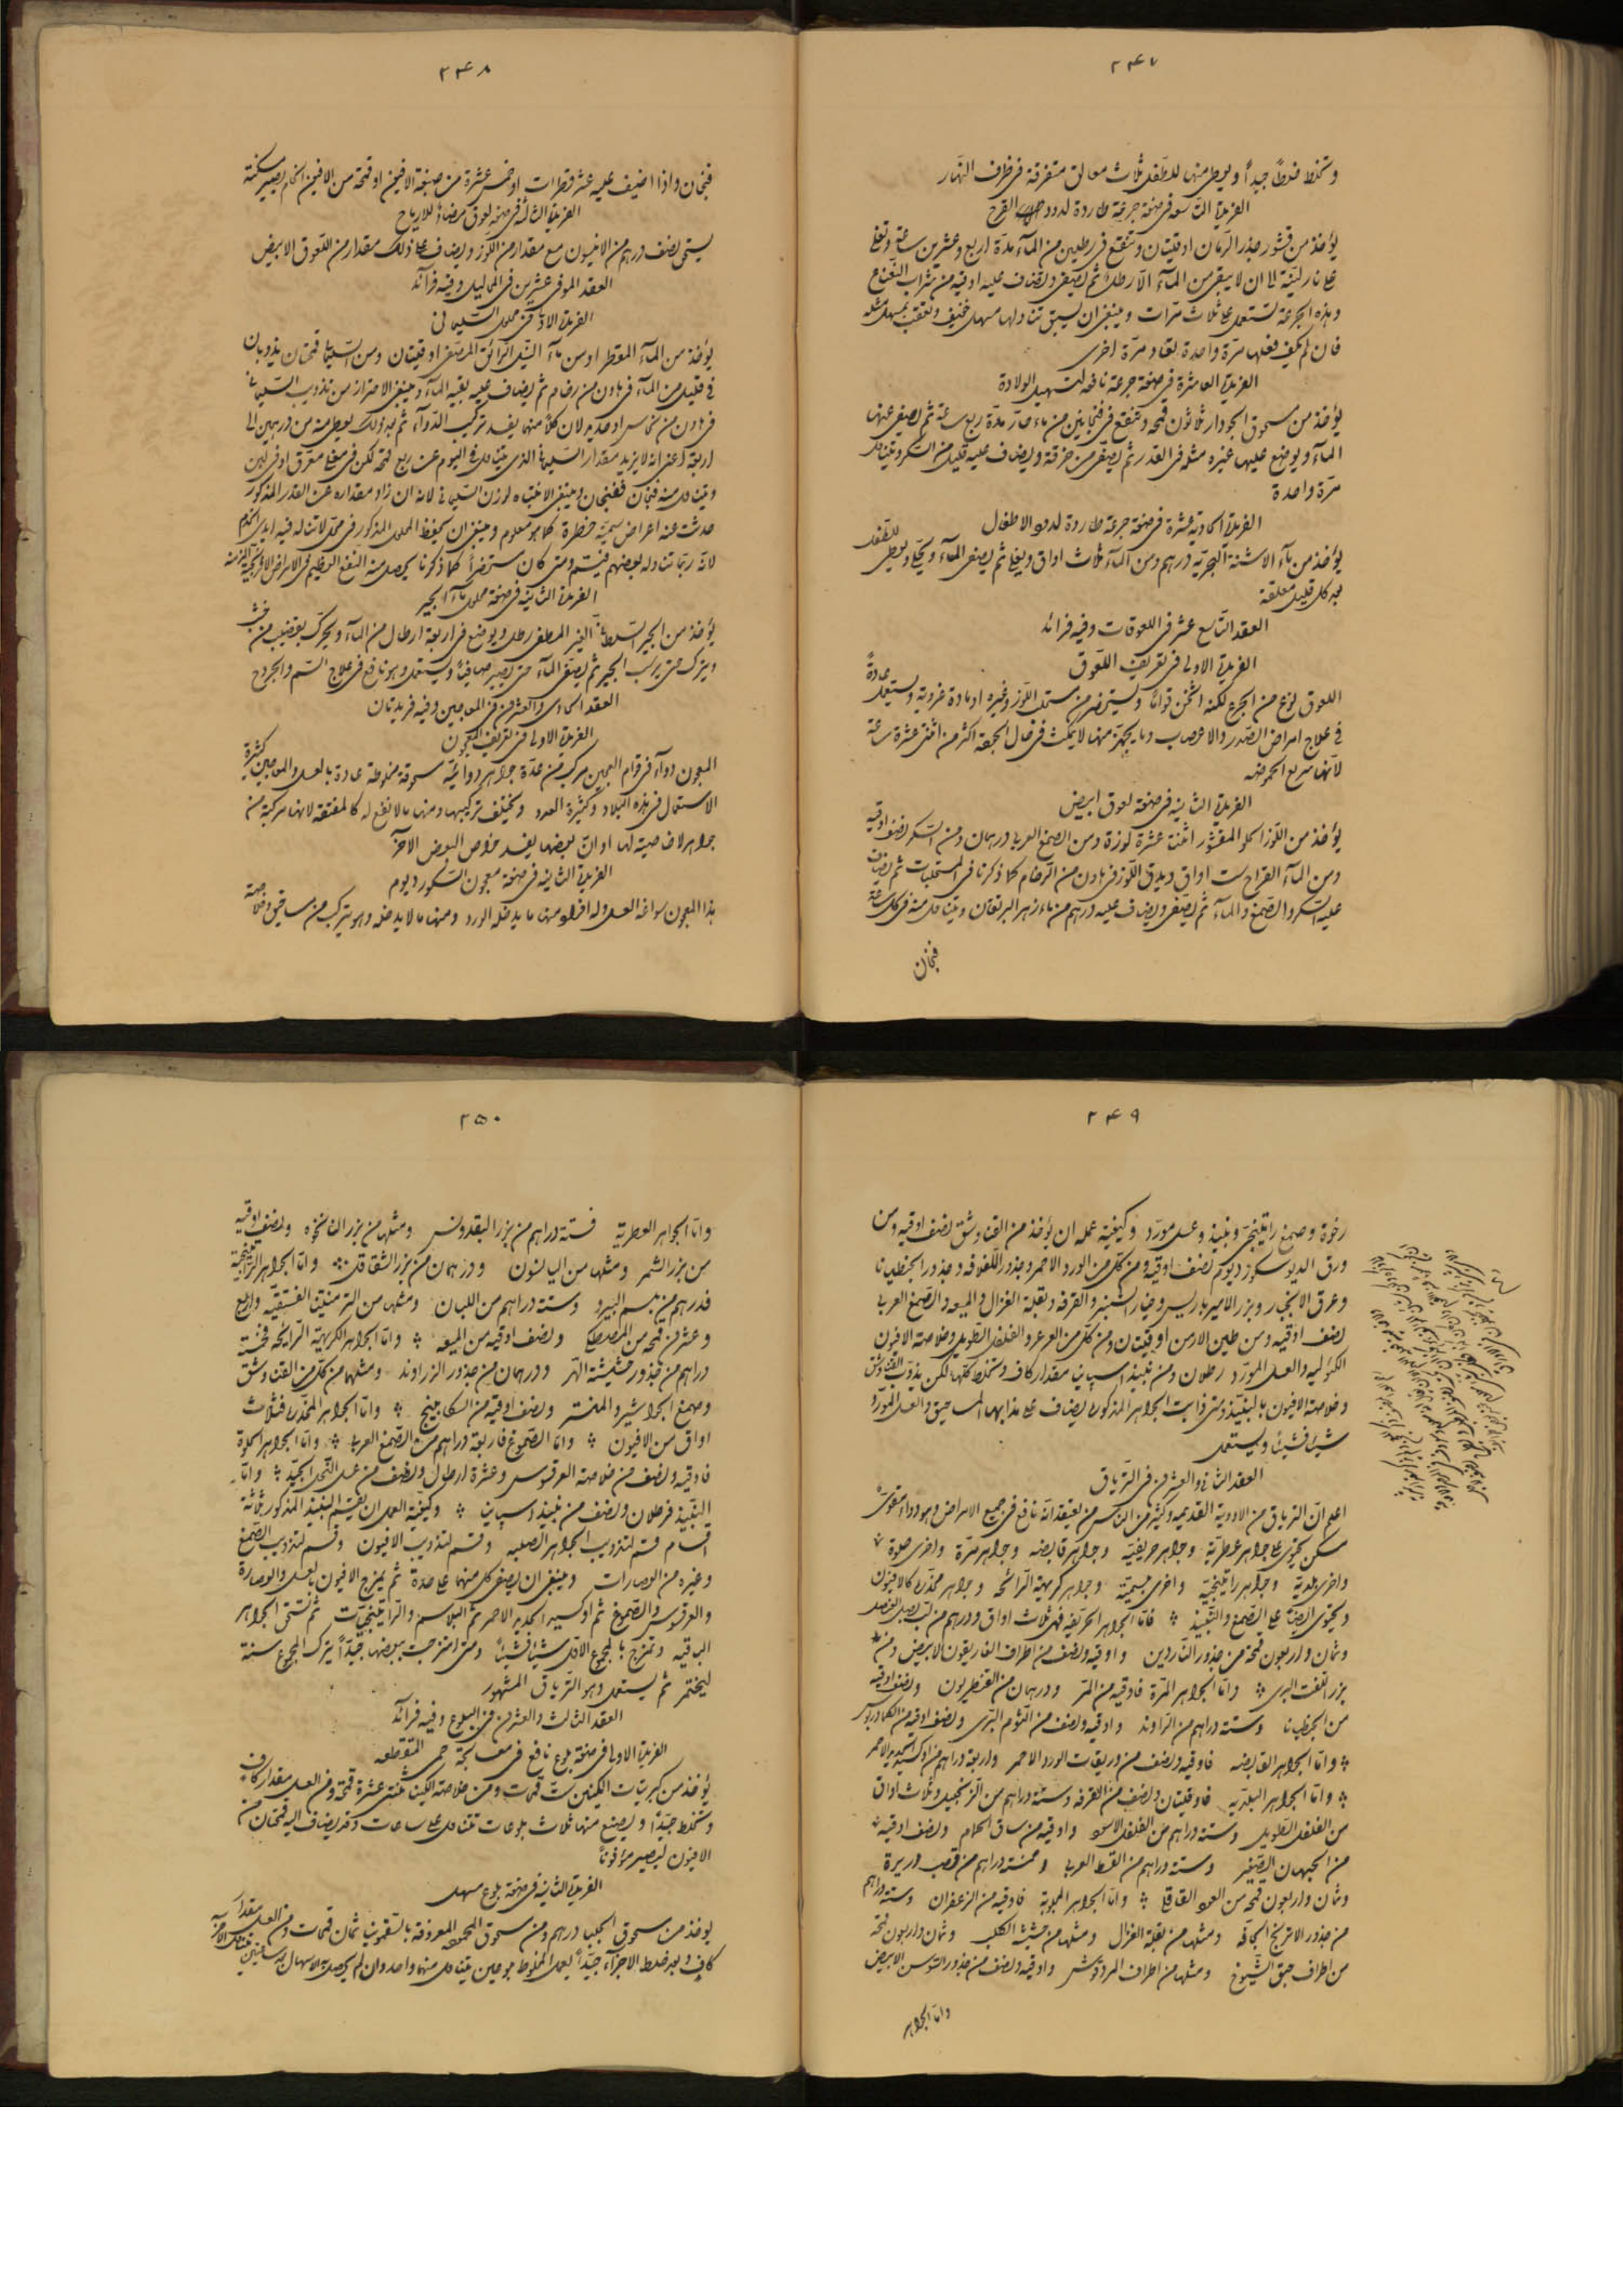 ٢٤٧
وتخلط خلطاً جيداً ويعطى منها للطفل ثلاث معالق متفرقة فى ظرف النهار
الفريدة التاسعه فى صنعة جرعة طاردة لدود القرع
يؤخذ من قشور جذر الرمان اوقيتان وتنقع فى رطلين من المآء مدّة اربع وعشرين ساعة وتغلى
على نار لينة الى ان لا يبقى من المآء الّا رطل ثم يصفى ويضاف عليه اوقيه من شراب النعناع
وهذه الجرعة تستعمل على ثلاث مرّات وينبغى ان يسبق تناولها مسهل خفيف وتعقب بمسهل مثله
فان لم يكف فعلها مرّة واحدة تعاد مرّة اخرى
الفريدة العاشرة فى صنعة جرعة نافعه لتسهيل الولادة
يؤخذ من مسحوق الجودار ثلاثون قمحه وتنقع فى فنجانين من ماء حارّ مدّة ربع ساعة ثم يصفى عنها
المآء ويوضع عليها غيره مثله فى القدر ثم يصفى من خرقة ويضاف عليه قليل من السكر ويتناول
مرّة واحدة
الفريدة الحادية عشرة فى صنعة جرعة طاردة لدود الاطفال
يؤخذ من مآء الاشنة البحريه درهم ومن المآء ثلاث اواق ويغلى ثم يصفى المآء ويحلّى ويعطى للطفل
منه كل قليل معلقة
العقد التاسع عشر فى اللعوقات وفيه فرائد
الفريدة الاولى فى تعريف اللعوق
اللعوق نوع من الجرع لكنه اثخن قواماً ويستحضر من مستحلب اللوز وغيره او مادة غروية ويستعمل عادةً
فى علاج امراض الصدر والاعصاب وما يجهز منها لا يمكث فى حال الجودة اكثر من اثنتى عشرة ساعة
لانها سريع الحموضه
الفريدة الثانيه فى صنعة لعوق ابيض
يؤخذ من اللوز الحلو المقشور اثنتا عشرة لوزة ومن الصمغ العربى درهمان ومن السكر نصف اوقيه
ومن المآء القراح ست اواق ويدق اللوز فى هاون من الرخام كما ذكرنا فى المستحلبات ثم يضاف
عليه السكر والصمغ والمآء ثم يصفى ويضاف عليه درهم من ماء زهر البرتقان ويتناول منه فى كل ساعة
فنجان
٢٤٨
فنجان واذا اضيف عليه عشر قطرات او خمس عشرة من صبغة الافيون او قمحة من الافيون الخام يصير مسكنة
الفريدة الثالثه فى صنعة لعوق مضاد للارياح
يستحق نصف درهم من الانيسون مع مقدار من اللوز ويضاف على ذلك مقدار من اللعوق الابيض
العقد الموفى عشرين فى المحاليل وفيه فرآئد
الفريدة الاولى فى محلول السليمانى
يؤخذ من المآء المقطر او من مآء النيل الرائق المرشح اوقيتان ومن السليمانى قمحتان يذوبان
فى قليل من المآء فى هاون من رخام ثم يضاف عليه بقية المآء وينبغى الاحتراز من تذويب السليمانى
فى هاون من نحاس او حديد لان كلا منهما يفسد تركيب الدوآء ثم بعد ذلك يعطى منه من درهمين الى
اربعة اعنى انه لا يزيد مقدار السليمانى الذى يتناول فى اليوم عن ربع قمحة لكن فى مغلى معرّق او فى لبن
ويتناول منه فنجان ففنجان وينبغى الانتباه لوزن السليمانى لانه ان زاد مقداره عن القدر المذكور
حدثت عنه اعراض سمية خطرة كما هو معلوم وينبغى ان يحفظ المحلول المذكور فى محل لا تناله فيه ايدى الخدم
لانه ربما تناوله بعضهم فيتسمم ومتى كان مستحضراً كما ذكرنا يحصل منه النفع العظيم فى الامراض الافرنجية المزمنة
الفريدة الثانيه فى صنعة محلول مآء الجير
يؤخذ من الجير السلطانى الغير المطفى رطل ويوضع فى اربعة ارطال من المآء ويحرك بقضيب من خشب
ويترك حتى يرسب الجير ثم يصفى المآء حتى يصير صافياً ويستعمل وهو نافع فى علاج السم والجروح
العقد الحادى والعشرون فى المعاجين وفيه فريدتان
الفريدة الاولى فى تعريف المعجون
المعجون دوآء فى قوام العجين مركب من عدّة جواهر دوائية مسحوقة مخلوطة عادة بالعسل والمعاجين كثيرة
الاستعمال فى هذه البلاد وكثيرة العدد ويختلف تركيبها ومنها ما لا نفع له كالمفتقة لانها مركبة من
جواهر لا خاصية لها او ان بعضها يفسد خواص البعض الآخر
الفريدة الثانيه فى صنعة معجون السكورديوم
هذا المعجون سواغه العسل وله افراد منها ما يدخله الورد ومنها ما لا يدخله وهو يتركب من مساحيق وخلاصة
٢٤٩
رخوة وصمغ راتينجى ونبيذ وعسل مورّد وكيفية عمله ان يؤخذ من القناوشق نصف اوقيه ومن
ورق السكورديوم نصف اوقيه ومن كل من الورد الاحمر وجذور اللفلافه وجذور الجنطيانا
وعرق الانجبار وبزر الاميرباريس وخيار الشنبر والقرفة وبقلة الغزال والميعه والصمغ العربى
نصف اوقيه ومن طين الارمن اوقيتان ومن كل من العرعر والفلفل الطويل وخلاصة الافيون
الكئوليه والعسل المورّد رطلان ومن نبيذ اسپانيا مقدار كاف وتخلط كلها لكن يذوب القناوشق
وخلاصة الافيون بالنبيذ ومتى ذابت الجواهر المذكوره يضاف على مذابها المساحيق والعسل المورّد
شيئا فشيئا ويستعمل
العقد الثانى والعشرون فى الترياق
اعلم انّ الترياق من الادوية القديمه وكثير من الناس من يعتقد انه نافع فى جميع الامراض وهو دواء مقوى
مسكن يحتوى على جواهر عطرية وجواهر حريفية وجواهر قابضه وجواهر مرّة واخرى حلوة
واخرى بلديه وجواهر راتينجية واخرى بلسمية وجواهر كريهة الرائحه وجواهر مخدّره كالافيون
ويحتوى ايضا على الصمغ والنبيذ فامّا الجواهر الحريفه فهى ثلاث اواق ودرهم من بصل العنصل
وثمان واربعون قمحة من جذور الناردين واوقيه ونصف من اطراف الغاريقون الابيض ومن
بزر اللفت البرى وامّا الجواهر المرّة فاوقيه من المرّ ودرهمان من القنطريون ونصف اوقيه
من الجنطيانا وستة دراهم من الراوند واوقيه ونصف من الثوم البرّى ونصف اوقيه من الكمادريوس
وامّا الجواهر القابضه فاوقيه ونصف من وريقات الورد الاحمر واربعة دراهم من اوكسيد الحديد الاحمر
وامّا الجواهر البلديه فاوقيتان ونصف من القرفه وستة دراهم من الزنجبيل وثلاث اواق
من الفلفل الطويل وستة دراهم من الفلفل الاسود واوقيه من ساق الحمام ونصف اوقيه
من الحبهان الصغير وستة دراهم من القسط العربى وخمسة دراهم من قصب ذريرة
وثمان واربعون قمحه من العود القاقلى وامّا الجواهر فاوقيه من الزعفران وستة دراهم
من جذور الاترنج الجافه ومثلها من بقلة الغزال ومثلها من حشيشة الكلب وثمان واربعون قمحة
من اطراف حبق الشيوخ ومثلها من اطراف المردقوش واوقيه ونصف من جذور السوسن الابيض
وامّا الجواهر
٢٥٠
وامّا الجواهر العطرية فستة دراهم من بزر البقدونس ومثلها من بزر النانخوه ونصف اوقيه
من بزر الشمر ومثلها من اليانسون ودرهمان من بزر الشقاقل وامّا الجواهر الراتينجية
فدرهم من بلسم البيرو وستة دراهم من اللبان ومثلها من الترمنتينا الفستقيه واربع
وعشرون قمحه من المصطكى ونصف اوقيه من الميعه وامّا الجواهر الكريهة الرائحه فخمسة
دراهم من جذور حشيشة الهر ودرهمان من جذور الزراوند ومثلها من كل من القناوشق
وصمغ الجواشير والحلتيت ونصف اوقيه من السكابينج وامّا الجواهر المخدّره فثلاث
اواق من الافيون وامّا الصموغ فاربعة دراهم من الصمغ العربى وامّا الجواهر الحلوة
فاوقيه ونصف من خلاصة العرقسوس وعشرة ارطال ونصف من عسل النحل الجيّد وامّا
النبيذ فرطلان ونصف من نبيذ اسپانيا وكيفية العمل ان يقسم النبيذ المذكور ثلاثة
اقسام قسم لتذويب الجواهر الصلبه وقسم لتذويب الافيون وقسم لتذويب الصمغ
وغيره من العصارات وينبغى ان يصفى كل منها على حدة ثم يمزج الافيون بالعسل والعصارة
والعرقسوس والصموغ ثم اوكسيد الحديد الاحمر ثم البلاسم والراتينجيات ثم تسحق الجواهر
الباقيه وتمزج بالمجموع الاول شيئا فشيئاً ومتى امتزجت ببعضها جيّداً يترك المجموع سنة
ليختمر ثم يستعمل وهو الترياق المشهور
العقد الثالث والعشرون فى البلوع وفيه فرآئد
الفريدة الاولى فى صنعة بلوع نافع فى معالجة حمى المتقطعه
يؤخذ من كبريتات الكينين ست قمحات ومن خلاصة الكينا ثنتى عشرة قمحة ومن العسل مقدار كاف
وتخلط جيّداً ويصنع منها ثلاث بلوعات تتناول على ساعات وقد يضاف اليه قمحتان من
الافيون ليصير مؤفوناً
الفريدة الثانيه فى صنعة بلوع مسهل
يؤخذ من مسحوق الجلبا درهم ومن مسحوق المحموده المعروفة بالسقمونيا ثمان قمحات ومن العسل مقدار
كافٍ وبعد خلط الاجزآء جيّداً يعمل المخلوط بلوعين يتناول منها واحد وان لم يحصل الاسهال بعد ساعتين يتناول الآخر